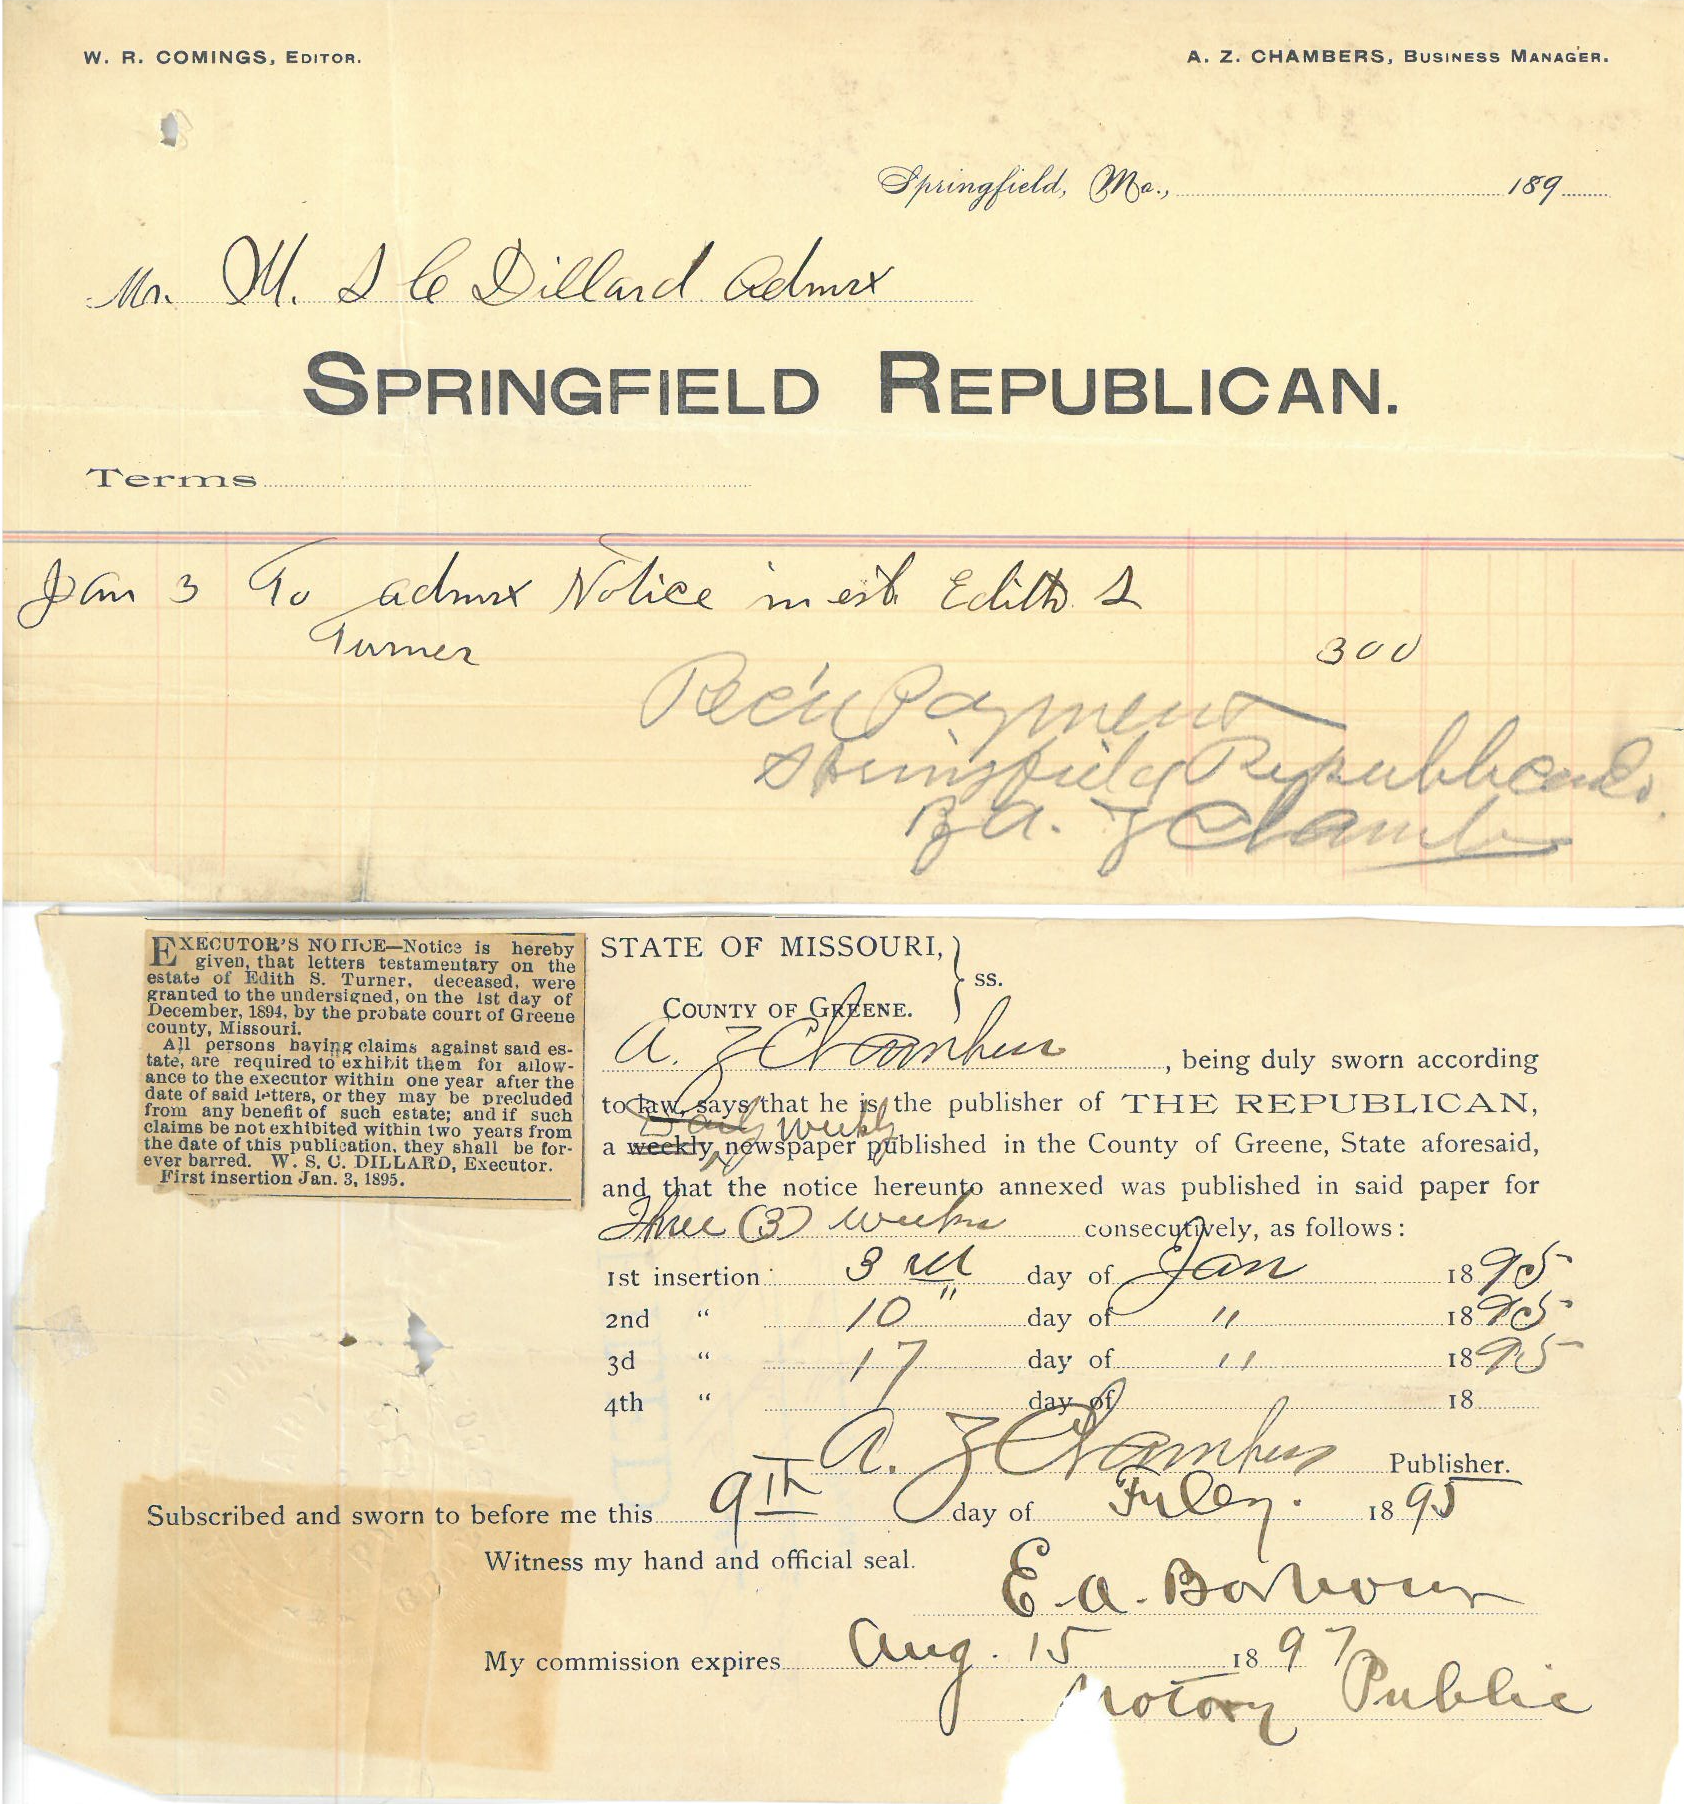 W. R. COMINGS, EDITOR. A. Z. CHAMBERS, BUSINESS MANAGER.
Springfield, Mo., 189
Mr. M. S C Dillard Admrx
SPRINGFIELD REPUBLICAN.
Terms
Jan 3 To admrx Notice in est. Edith S
Turner 300
Rec'd Payment
Springfield Republican Co.
By A. Z Chambers
EXECUTOR'S NOTICE—Notice is hereby
given, that letters testamentary on the
estate of Edith S. Turner, deceased, were
granted to the undersigned, on the 1st day of
December, 1894, by the probate court of Greene
county, Missouri.
All persons having claims against said es-
tate, are required to exhibit them for allow-
ance to the executor within one year after the
date of said letters, or they may be precluded
from any benefit of such estate; and if such
claims be not exhibited within two years from
the date of this publication, they shall be for-
ever barred. W. S. C. DILLARD, Executor.
First insertion Jan. 3, 1895.
STATE OF MISSOURI, } ss.
COUNTY OF GREENE.
A. Z Chambers, being duly sworn according
to law, says that he is the publisher of THE REPUBLICAN,
Daily Weekly
a weekly newspaper published in the County of Greene, State aforesaid,
and that the notice hereunto annexed was published in said paper for
Three (3) weeks consecutively, as follows:
1st insertion 3rd day of Jan 1895
2nd " 10 " day of " 1895
3d " 17 day of " 1895
4th " day of 18
A. Z Chambers Publisher.
Subscribed and sworn to before me this 9TH day of Feby. 1895
Witness my hand and official seal.
E. A. Barbour
My commission expires Aug. 15 1897
Notary Public